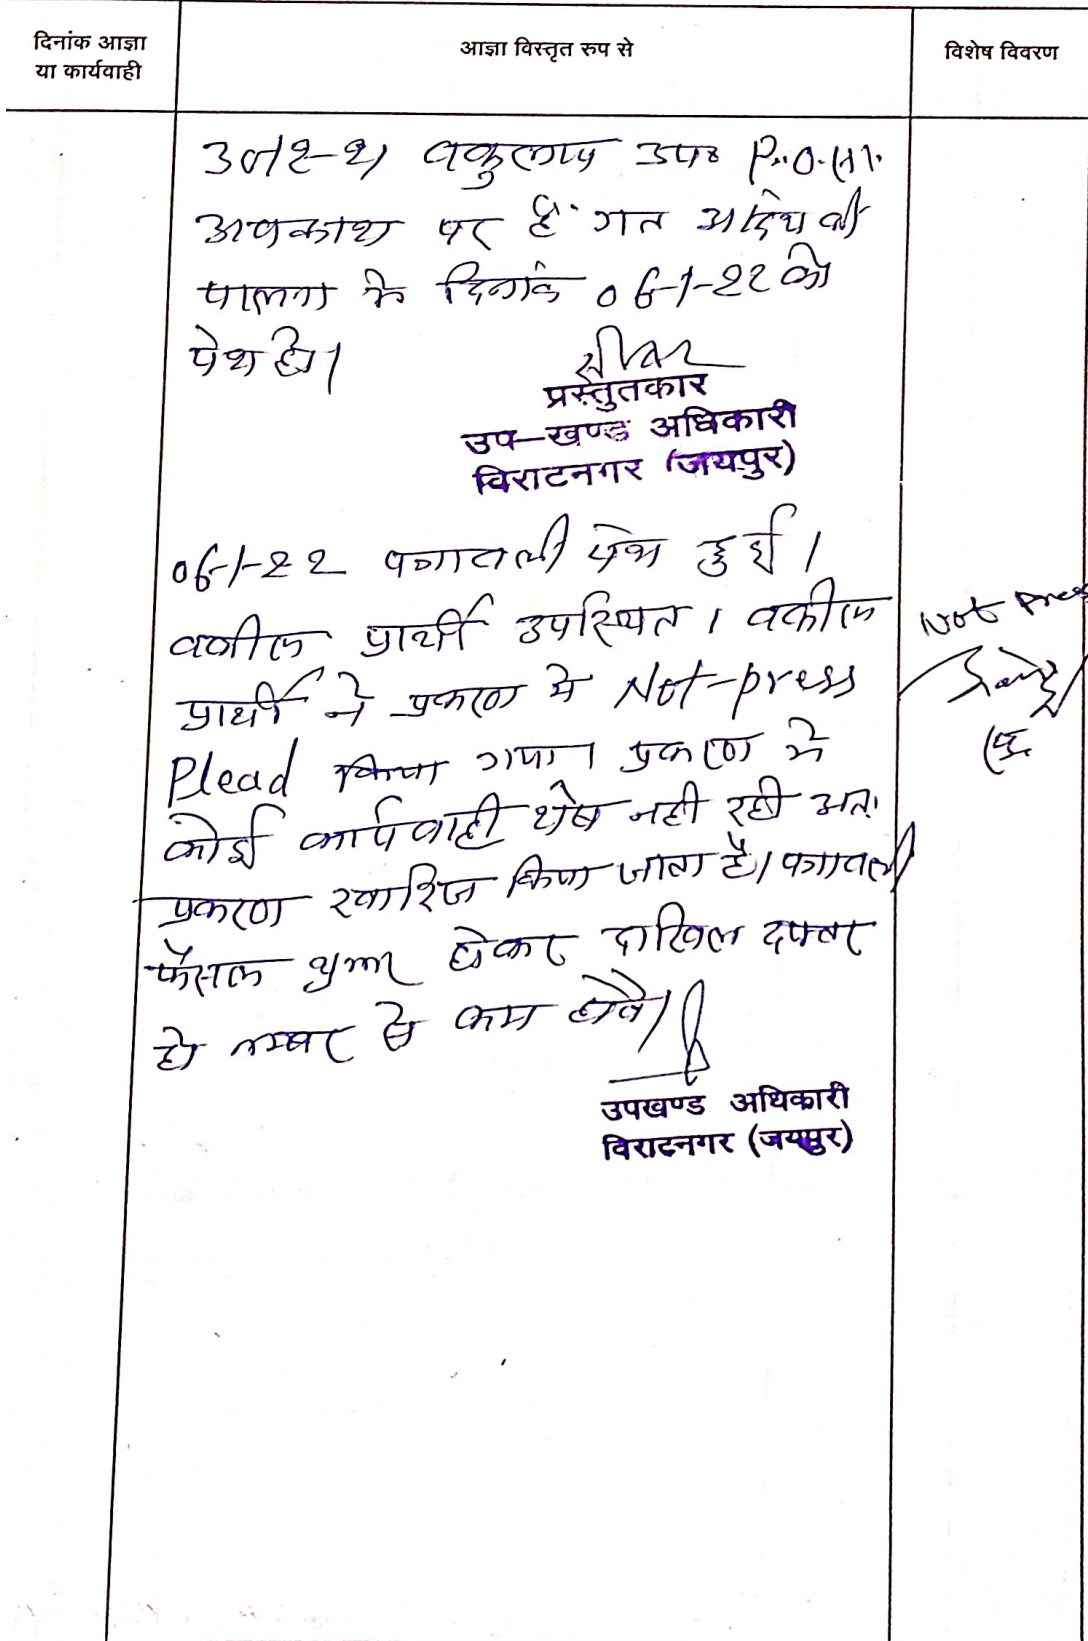 दिनांक आज्ञा
या कार्यवाही
आज्ञा विस्तृत रुप से
विशेष विवरण
वकुलाय उप० P.O. सा.
अवकाश पर हैं गत आदेश की
पालना में दिनांक 06-1-22 को
पेश हो।
प्रस्तुतकार
उप-खण्ड अधिकारी
विराटनगर (जयपुर)
06-1-22 पत्रावली पेश हुई।
वकील प्रार्थी उपस्थित। वकील
प्रार्थी ने प्रकरण मे Not-press
Plead किया गया। प्रकरण मे
कोई कार्यवाही शेष नही रही अतः
प्रकरण खारिज किया जाता है। पत्रावली
फैसल शुमार होकर दाखिल दफ्तर
हो नम्बर से कम होवे।
उपखण्ड अधिकारी
विराटनगर (जयपुर)
Not Press